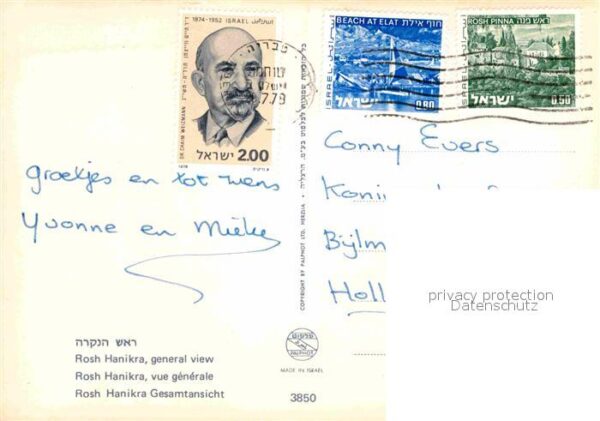 1874-1952 ISRAEL اسرائيل
DR. CHAIM WEIZMANN
ישראל 2.00
1978
טבריה
7.79
BEACH AT ELAT חוף אילת
ISRAEL اسرائيل
ישראל 0.80
ROSH PINNA ראש פנה
ISRAEL اسرائيل
ישראל 0.50
groetjes en tot ziens
Yvonne en Mieke
COPYRIGHT BY PALPHOT LTD. HERZLIA
כל הזכויות שמורות לפלפוט בע"מ. הרצליה
Conny Evers
Bijlm
Holl
privacy protection
Datenschutz
ראש הנקרה
Rosh Hanikra, general view
Rosh Hanikra, vue générale
Rosh Hanikra Gesamtansicht
3850
פלפוט
PALPHOT
MADE IN ISRAEL